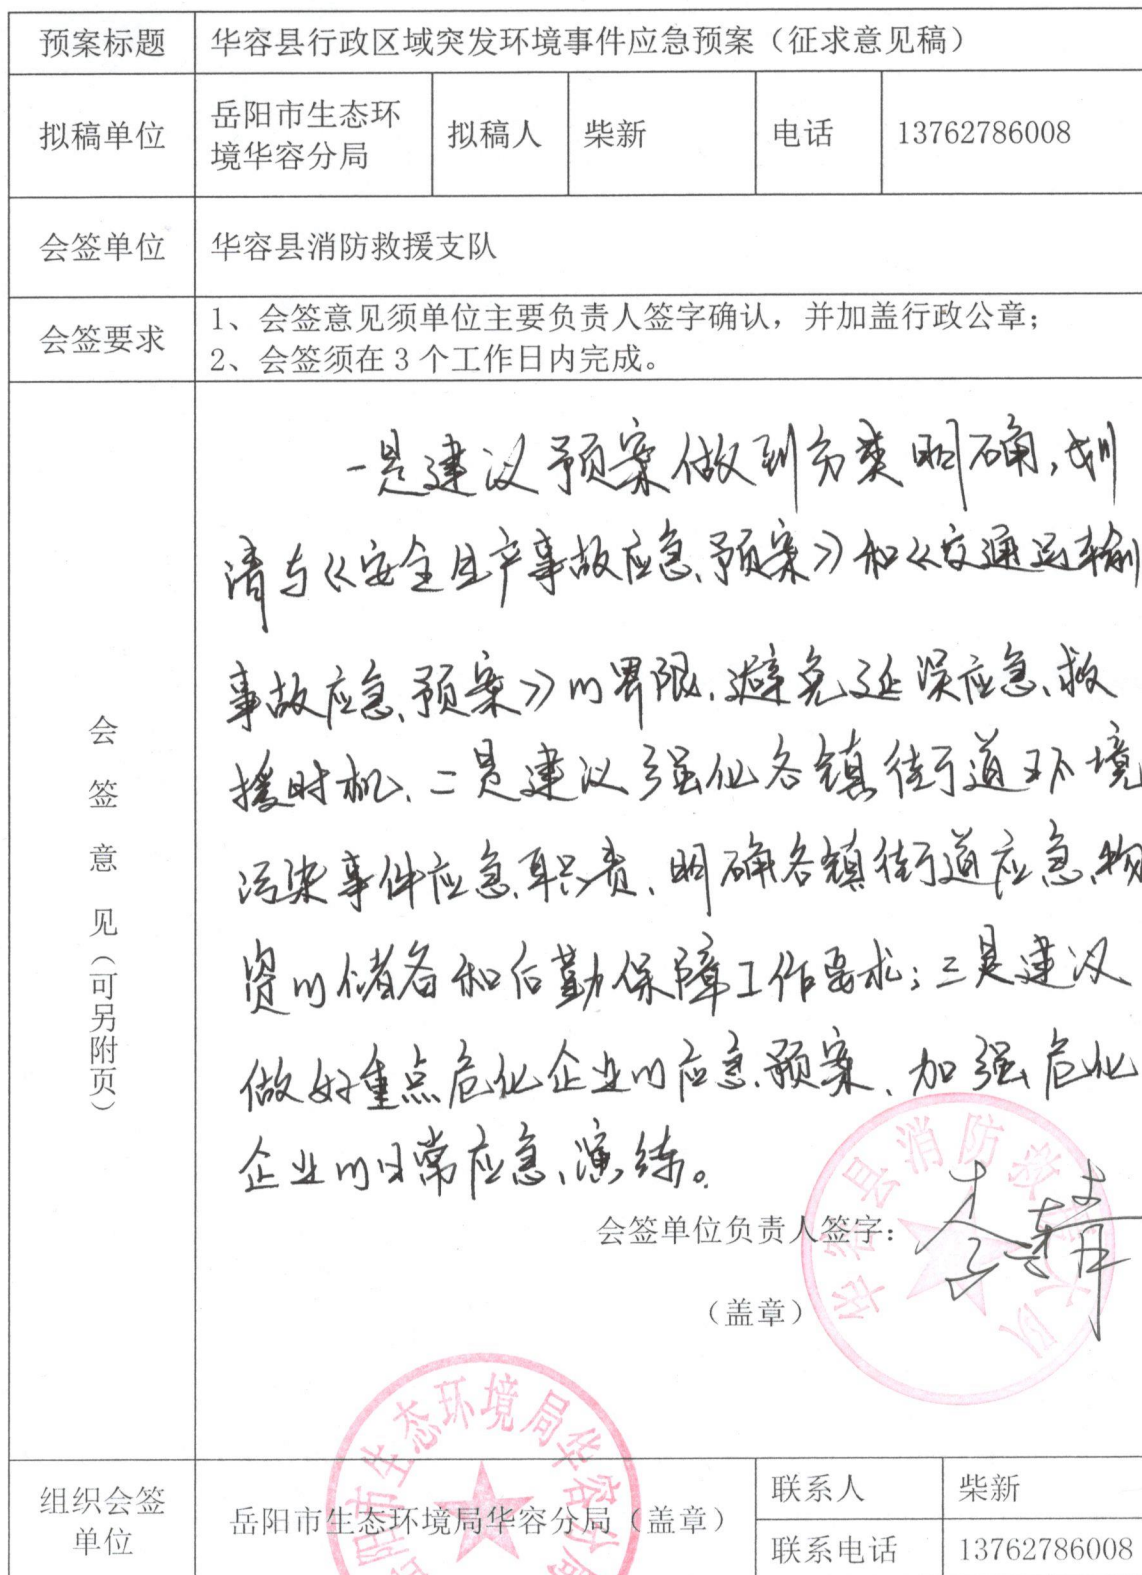 预案标题 华容县行政区域突发环境事件应急预案（征求意见稿）
拟稿单位 岳阳市生态环境华容分局 拟稿人 柴新 电话 13762786008
会签单位 华容县消防救援支队
会签要求 1、会签意见须单位主要负责人签字确认，并加盖行政公章；
2、会签须在 3 个工作日内完成。
会签意见（可另附页）
一是建议预案做到分类明确，划
清与《安全生产事故应急预案》和《交通运输
事故应急预案》的界限，避免延误应急救
援时机、二是建议强化各镇街道环境
污染事件应急职责、明确各镇街道应急物
资的储备和后勤保障工作要求；三是建议
做好重点危化企业的应急预案、加强危化
企业的日常应急演练。
会签单位负责人签字：
（盖章）
华容县消防救援大队
岳阳市生态环境局华容分局
组织会签单位 岳阳市生态环境局华容分局（盖章） 联系人 柴新
联系电话 13762786008